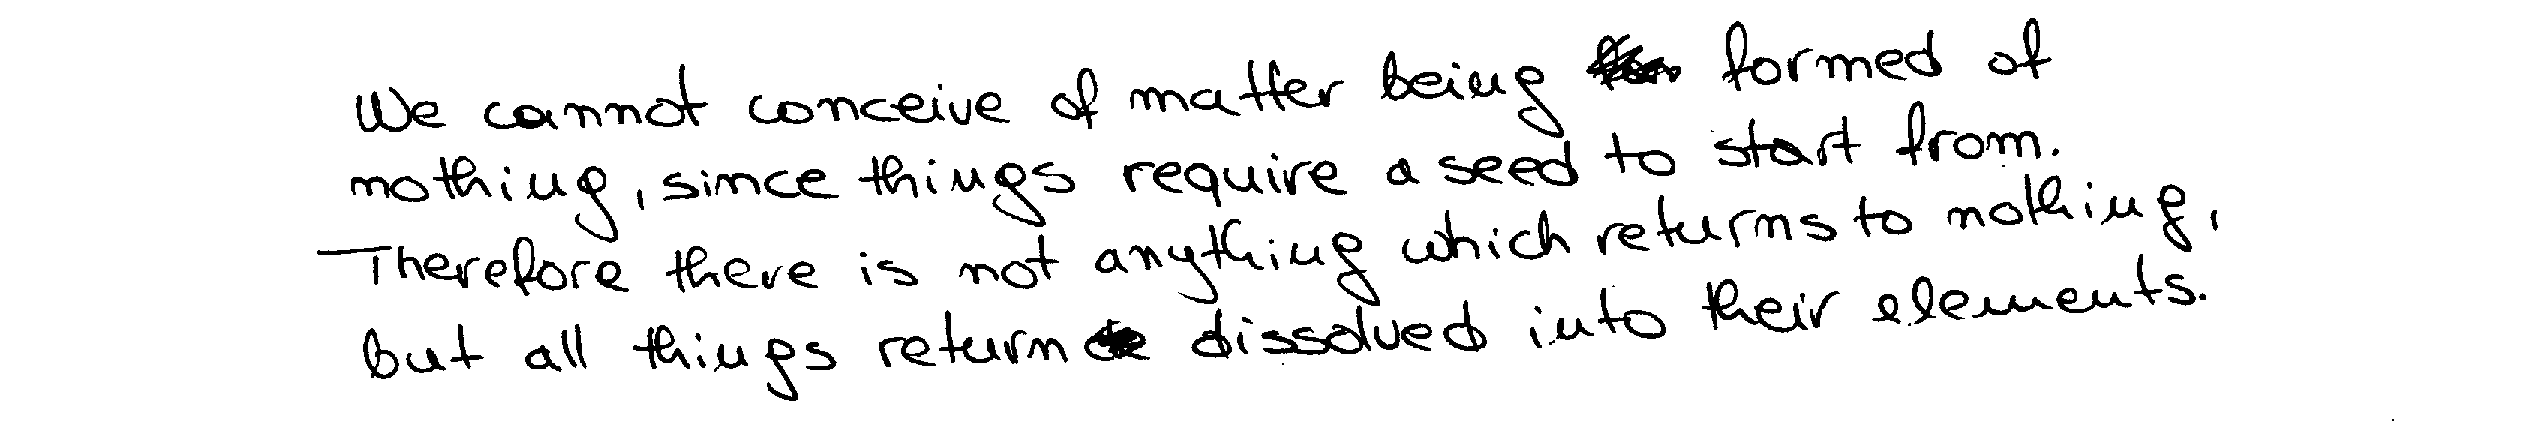 We cannot conceive of matter being formed of
nothing, since things require a seed to start from.
Therefore there is not anything which returns to nothing,
but all things return dissolved into their elements.